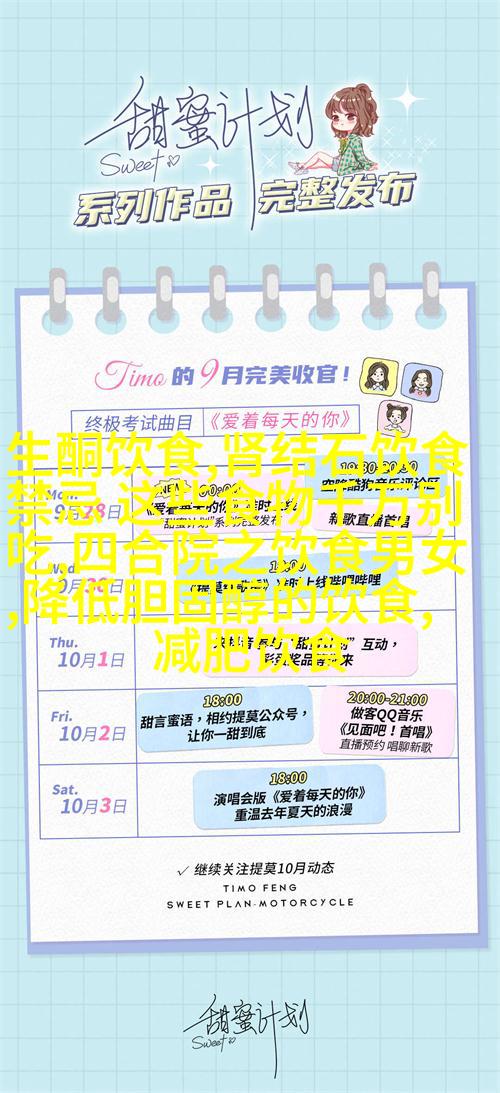 甜蜜计划
Sweet
系列作品 完整发布
Timo的9月完美收官!
终极考试曲目 《爱着每天的你》
生酮饮食,肾结石饮食
禁忌,这些食物千万别
吃,四合院之饮食男女
,降低胆固醇的饮食,
减肥饮食
Mon.
9月28日
新歌直播首唱
Wed.
Thu.
10月1日
Fri.
10月2日
18:00
甜言蜜语,相约提莫公众号,
让你一甜到底
20:00-21:00
做客QQ音乐
《见面吧!首唱》
直播预约 唱聊新歌
Sat.
10月3日
18:00
演唱会版《爱着每天的你》
重温去年夏天的浪漫
✓ 继续关注提莫10月动态
TIMO FENG
SWEET PLAN-MOTORCYCLE
甜蜜计划
Sweet